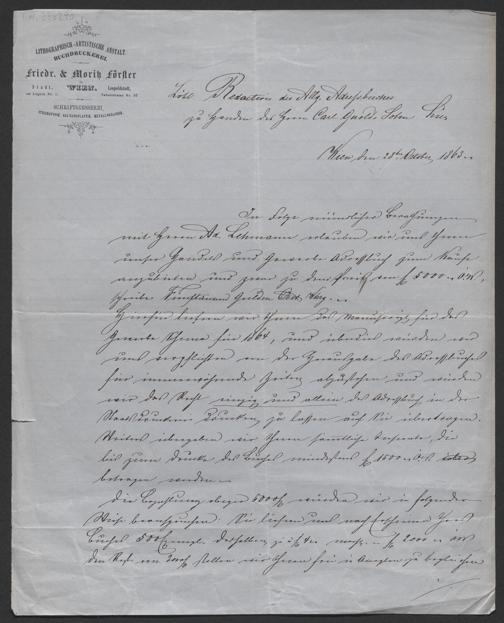 LITHOGRAPHISCH-ARTISTISCHE ANSTALT.
BUCHDRUCKEREI.
Friedr. & Moritz Förster
in
WIEN,
Stadt,
Leopoldstadt,
SCHRIFTGIESSEREI,
STEREOTYPIE, GALVANOPLASTIK, METALLOGRAPHIE.
Löbl. Redaction des Allg. Adreßbuches
zu Handen des Herrn Carl Gerold's Sohn hier
Wien, den 28ten October 1863.
In Folge mündlicher Berathungen
mit Herrn Ad. Lehmann erlauben wir uns Ihnen
unser Handels und Gewerbe Adreßbuch zum Kaufe
anzubieten und zwar zu dem Preise von f 5000 ö.W.
schreibe Fünftausend Gulden Oest. Whg.
Hiefür liefern wir Ihnen das Manuscript für das
Gewerbe Schema für 1864, und überdies würden wir
uns verpflichten von der Herausgabe des Adreßbuches
für immerwährende Zeiten abzustehen und würden
wir das Recht einzig und allein das Adreßbuch in der
Staatsdruckerei drucken zu lassen auf Sie übertragen.
Weiters übergeben wir Ihnen sämmtliche Inserate, die
bis zum Drucke des Buches mindestens f 1500
betragen werden.
Die Bezahlung obiger 5000 f würden wir in folgender
Weise beanspruchen. Sie liefern uns nach Erscheinen Ihres
Buches 500 Exempl. desselben zu f 4 macht f 2000
den Rest von 3000 f stellen wir Ihnen frei in zu begleichen